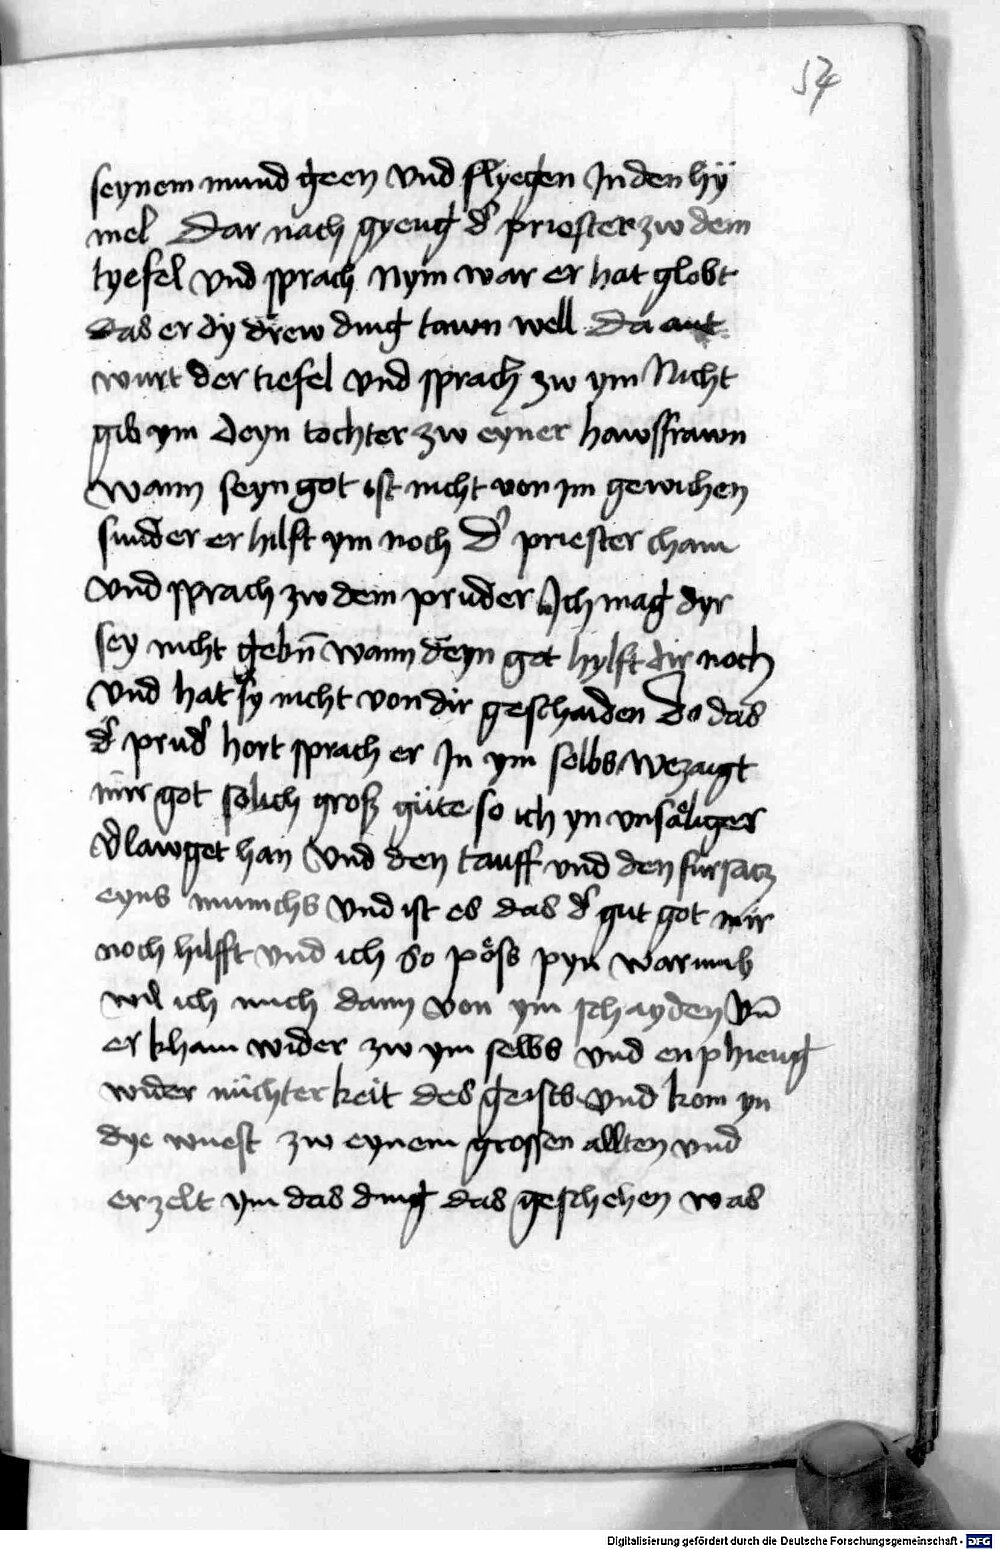 54
seynem mund geen vnd flyegen In den hÿ
mel Dar nach gyeng d' priester zw dem
tyefel vnd sprach Nym war er hat globt
das er dy drew ding tawn well Da ant
wurt der tiefel vnd sprach zw ym Nicht
gib ym deyn tochter zw eyner hawsfrawn
Wann seyn got ist nicht von im gewichen
sunder er hilft ym noch D' priester cham
vnd sprach zw dem pruder Ich mag dyr
sey nicht gebn̄ wann deyn got hylft dir noch
vnd hat sy nicht von dir geschaiden Do das
d' prud' hort sprach er In ym selbs Wezaigt
mir got solich groß güte so ich yn vnsäliger
v'lawget han Vnd den tauff vnd den fursacz
eyns munichs Vnd ist es das d' gut got mir
noch hilfft vnd ich so pöss pyn warumb
wil ich mich dann von ym schayden Vn̄
er kham wider zw ym selbs vnd enphieng
wider nüchterkeit des geists Vnd kom yn
dye wuest zw eynem grossen allten vnd
erzelt ym das ding das geschehen was
Digitalisierung gefördert durch die Deutsche Forschungsgemeinschaft - DFG